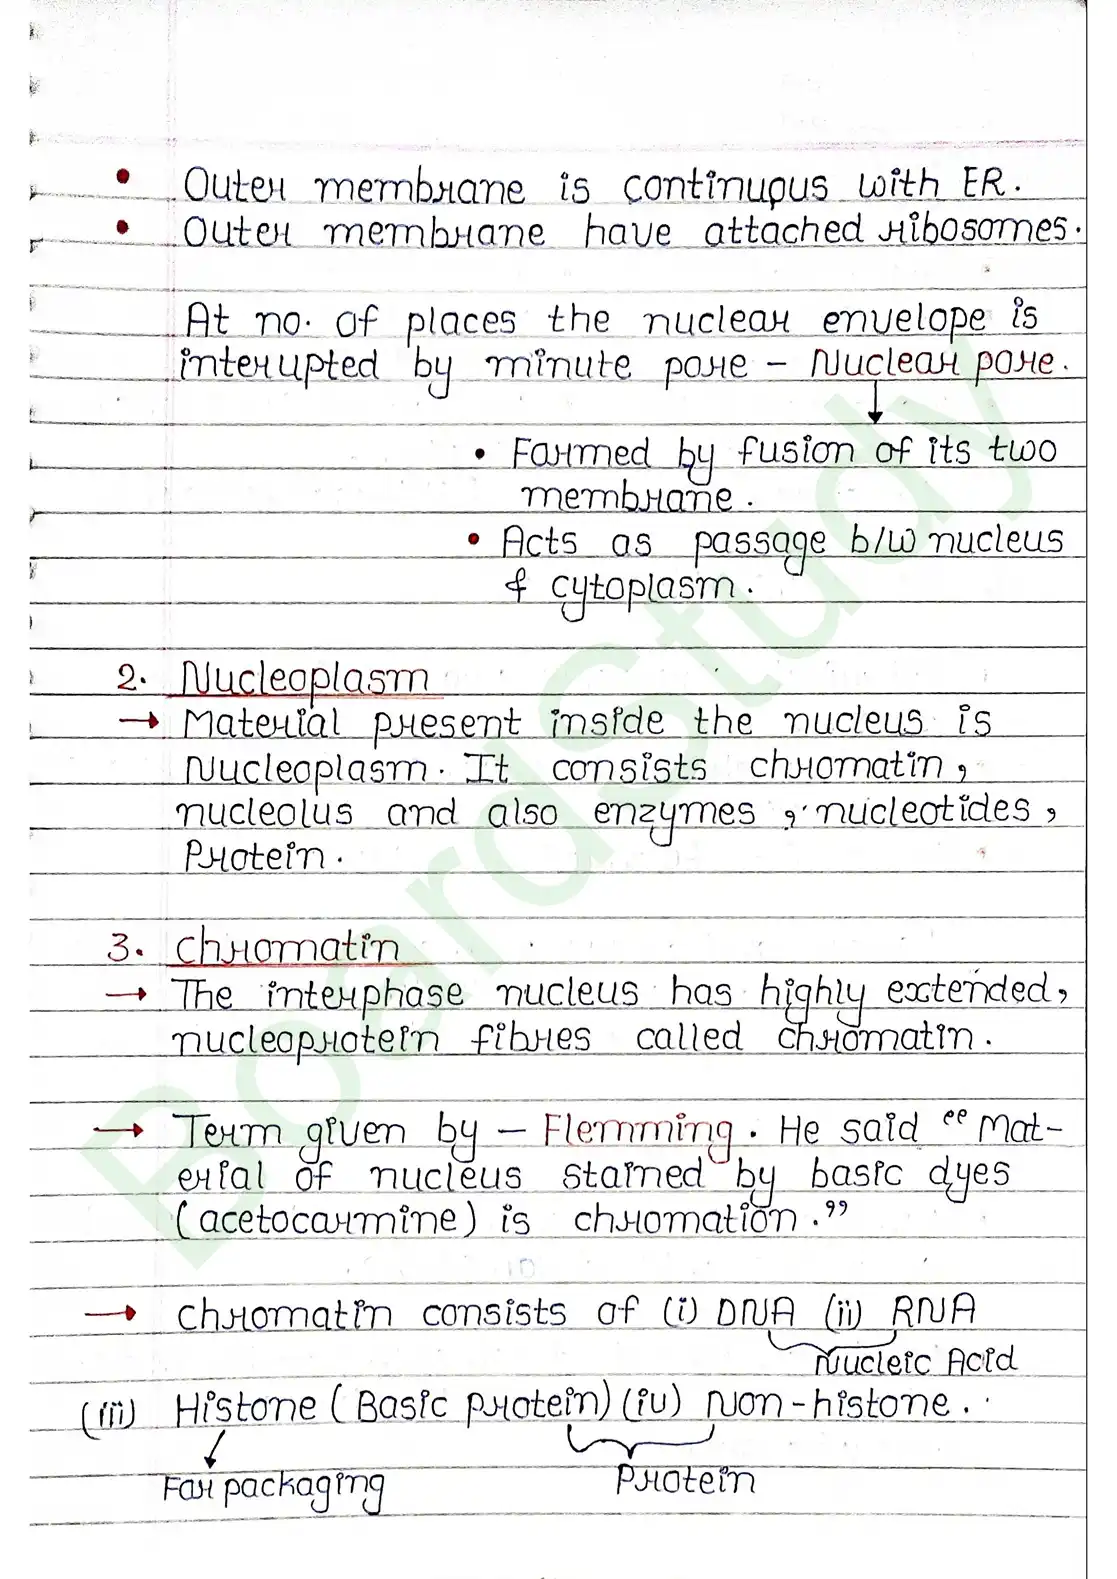 • Outer membrane is continuous with ER.
• Outer membrane have attached ribosomes.
At no. of places the nuclear envelope is
interrupted by minute pore - Nuclear pore.
• Formed by fusion of its two
membrane.
• Acts as passage b/w nucleus
& cytoplasm.
2. Nucleoplasm
→ Material present inside the nucleus is
Nucleoplasm. It consists chromatin,
nucleolus and also enzymes, nucleotides,
Protein.
3. Chromatin
→ The interphase nucleus has highly extended,
nucleoprotein fibres called chromatin.
→ Term given by - Flemming. He said “Mat-
erial of nucleus stained by basic dyes
(acetocarmine) is chromation.”
→ Chromatin consists of (i) DNA (ii) RNA
Nucleic Acid
(iii) Histone (Basic protein) (iv) Non-histone.
For packaging Protein
BoardStudy